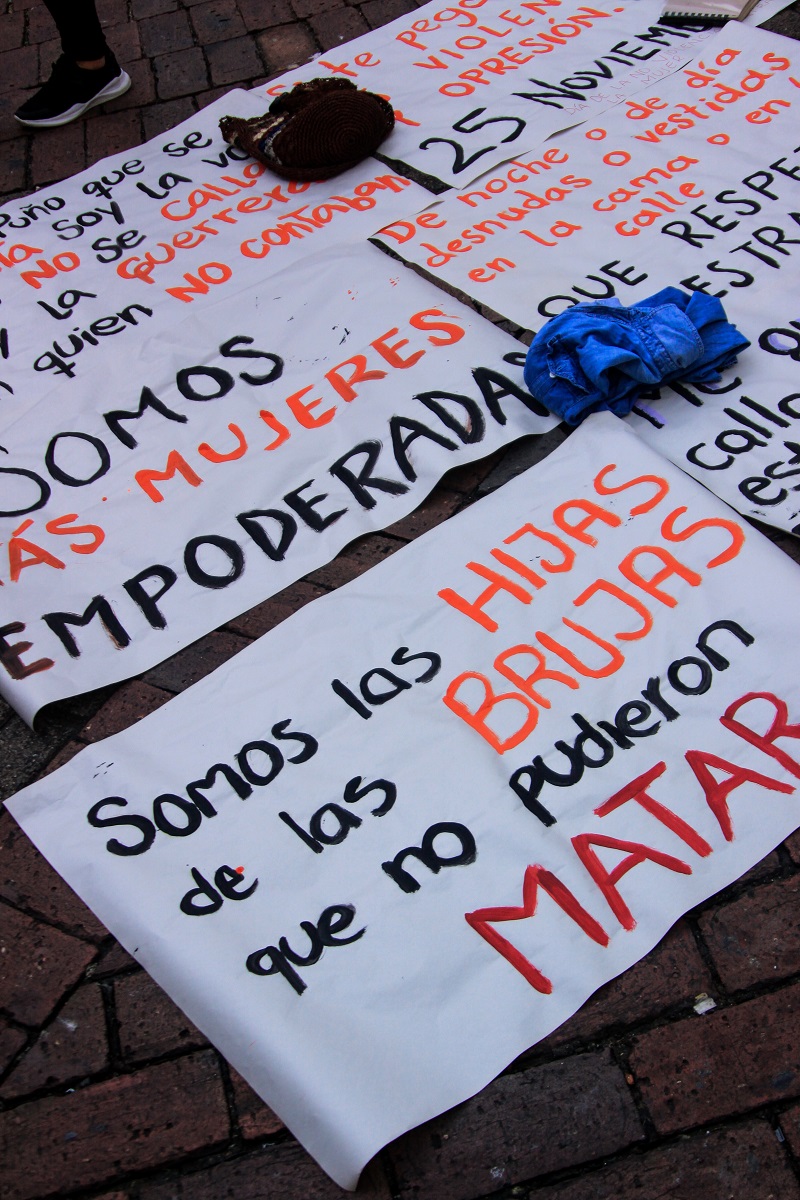 te pega
VIOLEN
OPRESIÓN.
25 NOVIEM
puño que se
soy la vo
NO se calla
y la guerrera
quien NO contaban
De noche o de día
desnudas o vestidas
en la cama o en
calle
QUE RESPE
ESTRA
callo
est
SOMOS
MÁS MUJERES
EMPODERADAS
Somos las HIJAS
de las BRUJAS
que no pudieron
MATAR